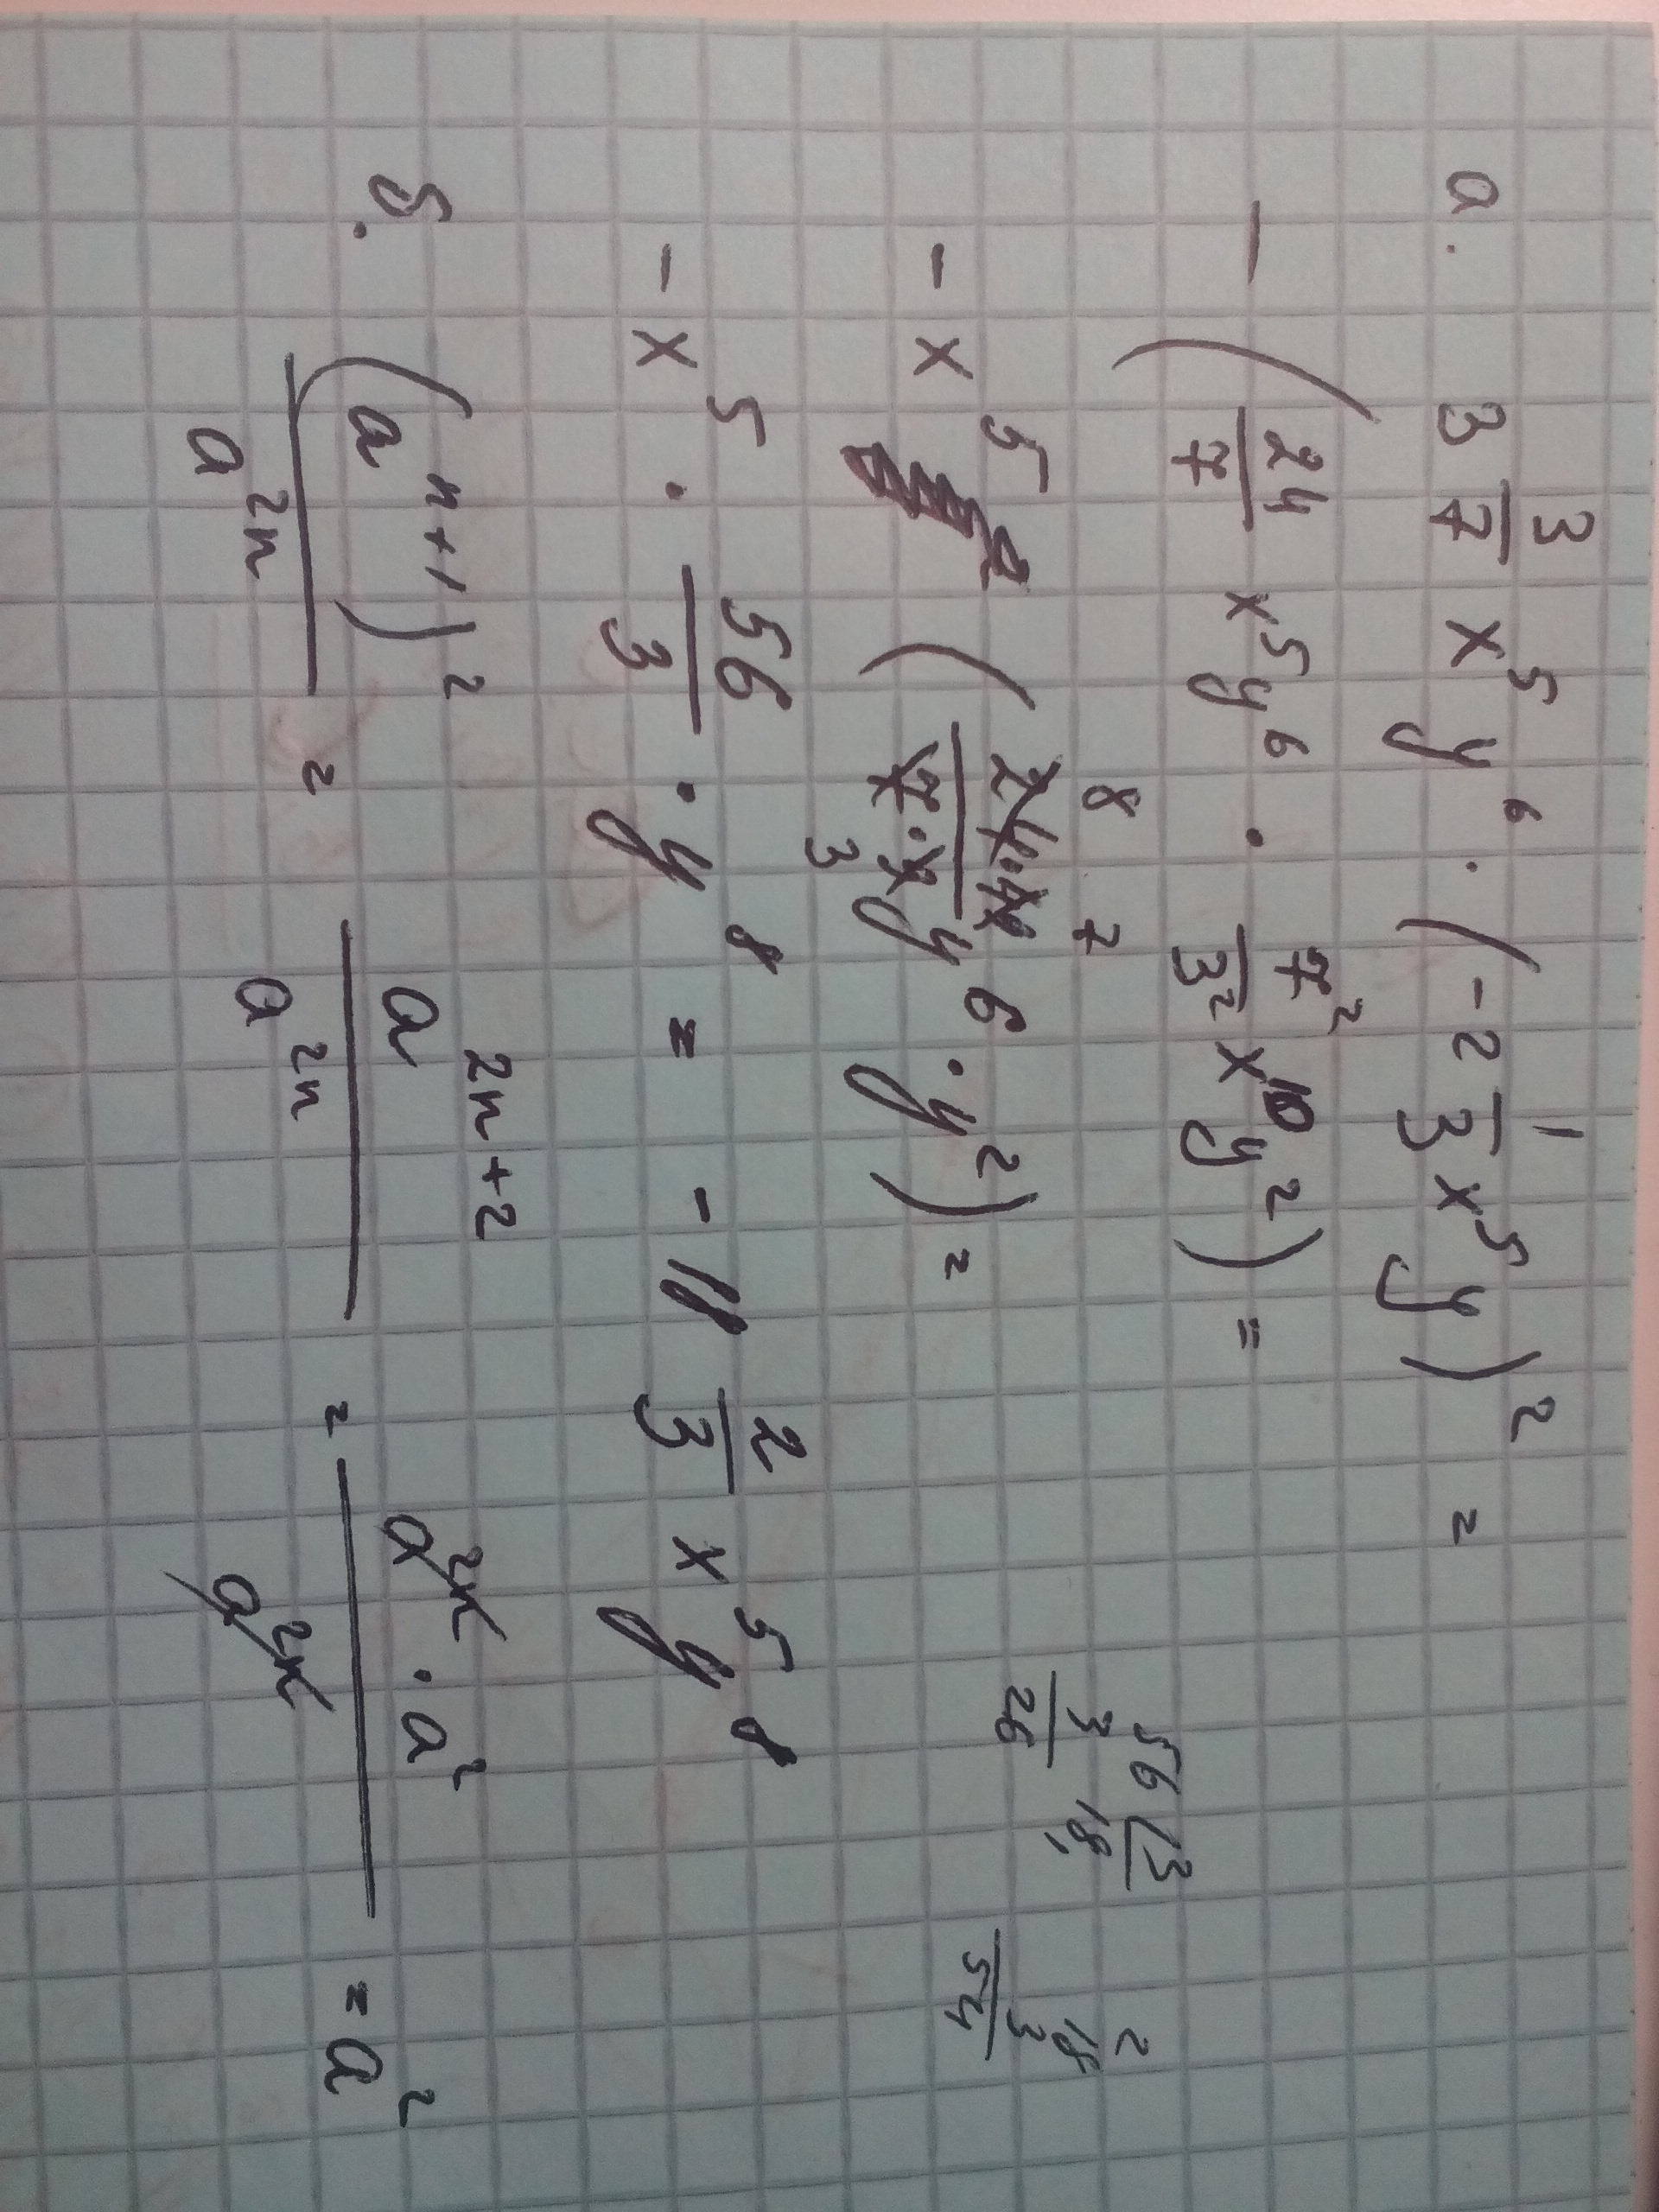 а. 3 3/7 x⁵ y⁶ · (-2 1/3 x⁵ y)² =
- (24/7 x⁵ y⁶ · 7²/3² x¹⁰ y²) =
- x⁵ (24·49/7·9 y⁶ · y²) =
8 7
3
- x⁵ · 56/3 · y⁸ = - 18 2/3 x⁵ y⁸
56 | 3
3 18,
26
2
18
3
54
б. (a^(n+1))² / a^(2n) = a^(2n+2) / a^(2n) = a^(2n) · a² / a^(2n) = a²